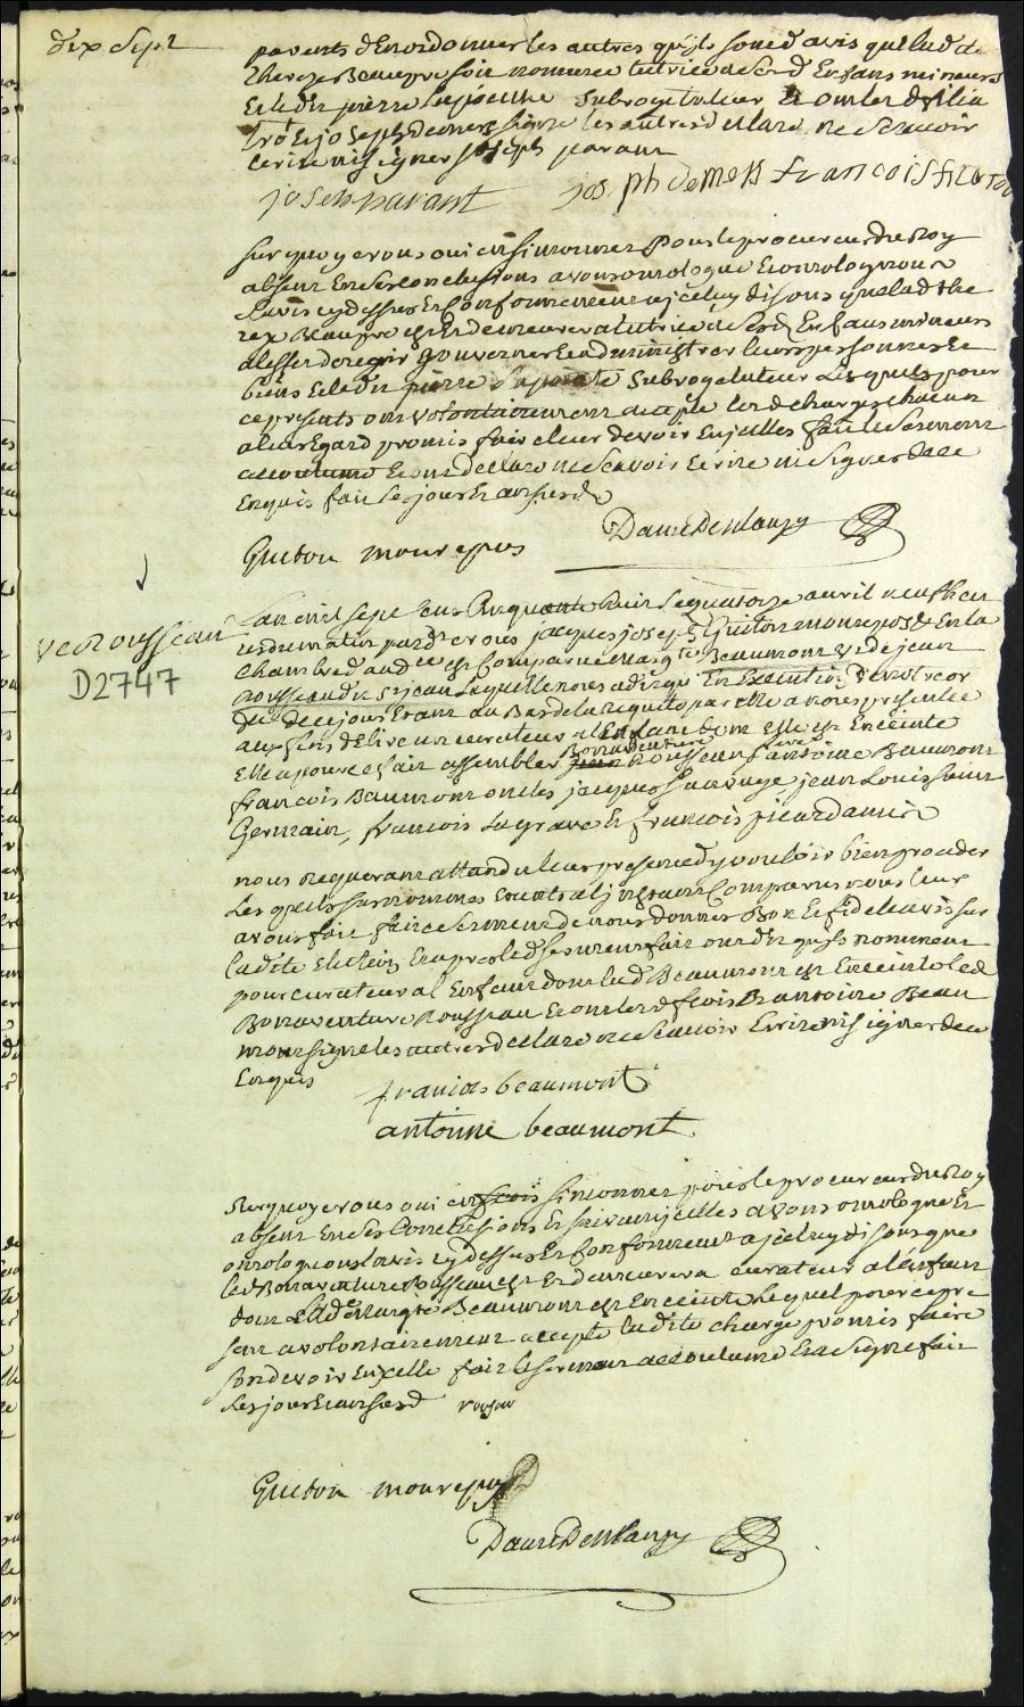 dix Sept
parents d'En ordonner les autres qu'ils sont d'avis que lad de
Therese Beaupré soit nommée tutrice de Sesd Enfans mineurs
Et led pierre Lapointe Subrogé tuteur Et ont lesd filia
trô Et joseph demers signé les autres déclaré ne Scavoir
écrire ni signer joseph parant
joseph parant jos. ph demers francois filiatro
Sur quoy et ouis oui simonnet Pour le procureur du Roy
absent En Ses conclusions avons omologué Et omologuons
L'avis cydessus Et Conformement a jceluy disons que lad the
reze Beaupré Est Et demeurera tutrice de Sesd Enfans mineurs
a l'effet de regir Gouverner Et administrer leurs personnes Et
biens Et led pierre Lapointe Subrogé tuteur Lesquels pour
ce presents ont volontairement accepté lesd charges chacun
a leur Egard promis faire leur devoir En jcelles fait le Serment
accoutumé Et ont declaré ne Scavoir Ecrire ni Signer de ce
Enquis fait Les jour Et an susd
Guiton monrepos Dauré De Blanzy
Ve Rousseau
D2747
L'an mil sept Cent Cinquante huit Le quatorze avril neuf heu
res du matin pard nous jacques joseph Guiton monrepos & En la
Chambre d'audce Est Comparue margte Beaumont Ve de jean
Rousseau dit St jean Laquelle nous a dit qu'En Execution De notre or
dce de ce jour Etant au Bas de la Requête par elle a nous presentée
aux fins d'Elire un curateur a l'Enfant dont elle est Enceinte
Elle a pour ce fait assembler Bonaventure Rousseau frere antoine Beaumont
francois Beaumont oncles jacques Sauvage, jean Louis Saint
Germain, francois Lagrave Et francois picard amis
nous Requerant attandu leur presence d'y vouloir bien proceder
Lesquels susnommes Etants a l'jnstant Comparus nous leur
avons fait faire Serment de nous donner Bon Et fidel avis sur
ladite Election Et apres led Serment fait ont dit qu'ils nomment
pour curateur a l'Enfant dont lad Beaumont Est Enceinte led
Bonaventure Rousseau Et ont lesd fcois Et antoine Beau
mont signé les autres déclaré ne Scavoir Ecrire ni signer de ce
Enquis
francois beaumont
antoinne beaumont
Sur quoy et ouis oui simonnet pour le procureur du Roy
absent En Ses Conclusions Et suivant jcelles avons omologué Et
omologuons l'avis cydessus Et Conformement a jceluy disons que
led Bonaventure Rousseau Est Et demeurera curateur a l'enfant
dont Lade margte Beaumont Est Enceinte Lequel pour ce pre
sent a volontairement accepté ladite charge promis faire
son devoir En jcelle fait le serment accoutumé Et a Signé fait
Les jour Et an susd
Guiton monrepos
Dauré De Blanzy